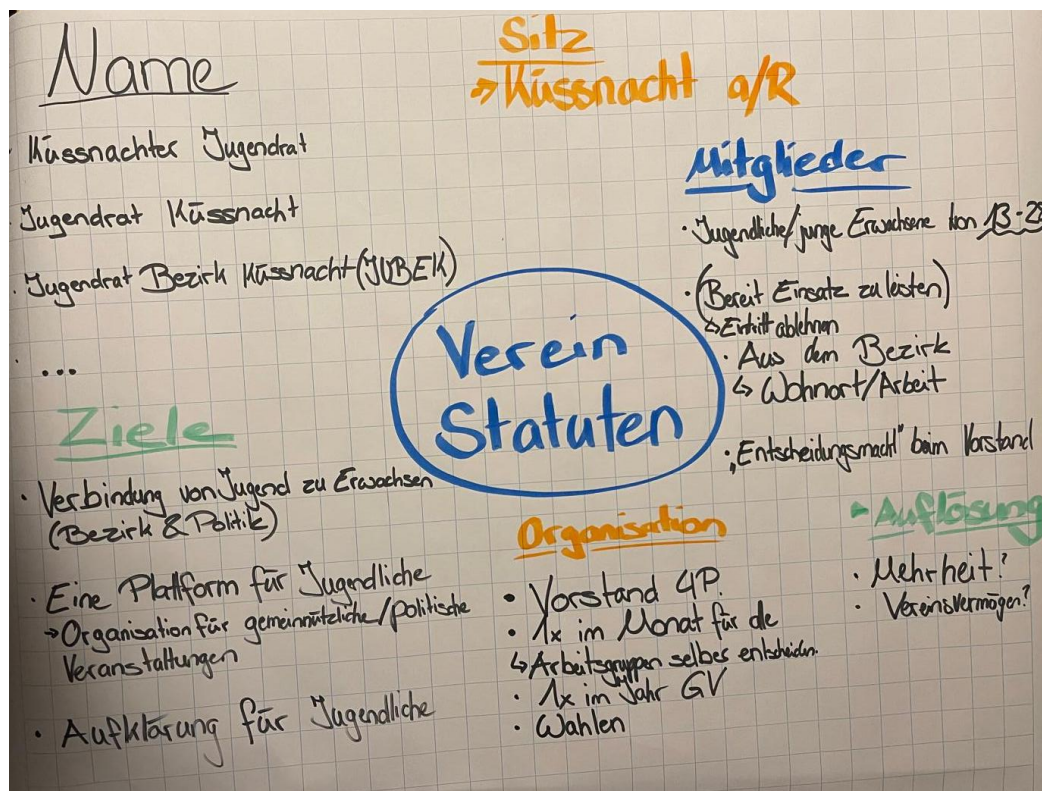 Name
Küssnachter Jugendrat
Jugendrat Küssnacht
Jugendrat Bezirk Küssnacht (JUBEK)
...
Sitz
→ Küssnacht a/R
Mitglieder
Jugendliche/junge Erwachsene von 13-2
(Bereit Einsatz zu leisten)
↳ Eintritt ablehnen
Aus dem Bezirk
↳ Wohnort/Arbeit
„Entscheidungsmacht" beim Vorstand
Verein
Statuten
Ziele
Verbindung von Jugend zu Erwachsen
(Bezirk & Politik)
Eine Plattform für Jugendliche
→ Organisation für gemeinnützliche/politische
Veranstaltungen
Aufklärung für Jugendliche
Organisation
Vorstand 4P.
1x im Monat für die
↳ Arbeitsgruppen selber entscheiden.
1x im Jahr GV
Wahlen
Auflösung
Mehrheit?
Vereinsvermögen?